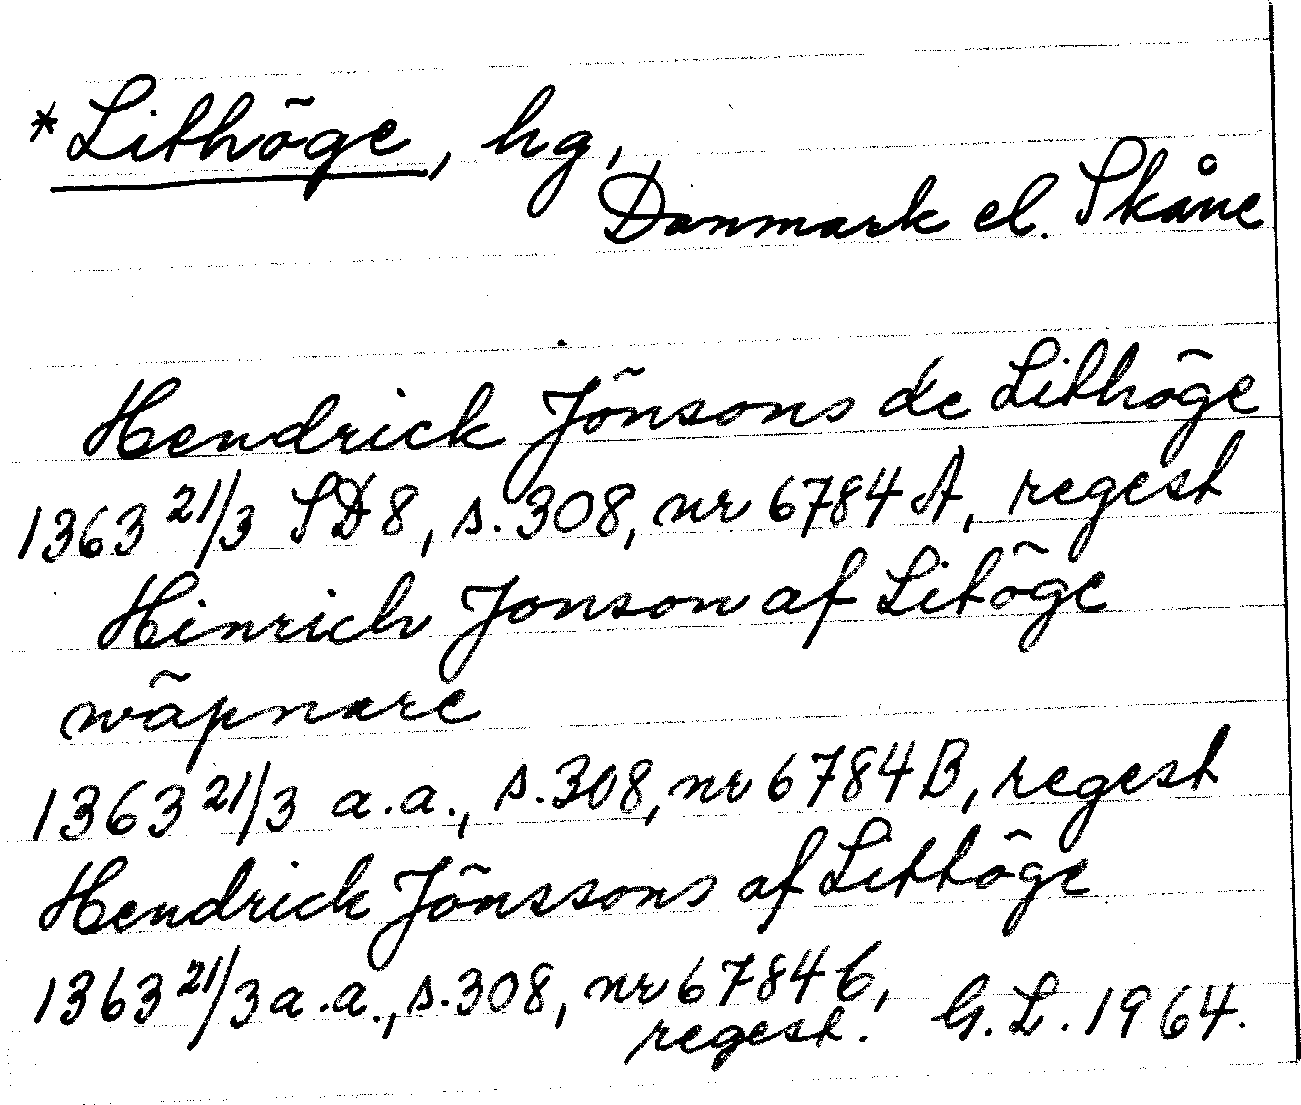 *Lithöge, hg,
Danmark el. Skåne
Hendrick Jönsons de Lithöge
1363 21/3 SD 8, s. 308, nr 6784 A, regest
Hinrich Jonson af Litöge
wäpnare
1363 21/3 a.a., s. 308, nr 6784 B, regest
Hendrick Jönssons af Litthöge
1363 21/3 a.a., s. 308, nr 6784 C,
regest. G. L. 1964.